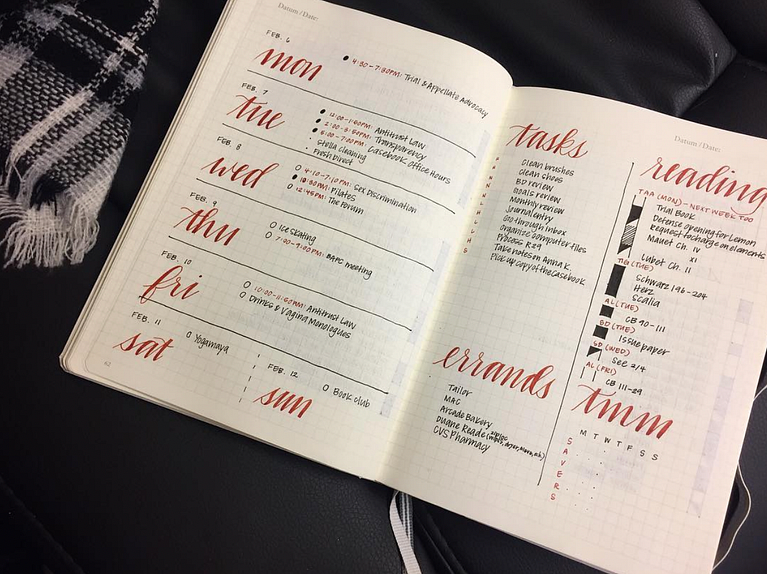 Datum / Date:
FEB. 6
mon
4:30-7:30PM: Trial & Appellate Advocacy
FEB. 7
tue
12:00-1:50PM: Antitrust Law
2:00-3:50PM: Transparency
5:00-7:00PM: Casebook office hours
Stella cleaning
Fresh Direct
FEB. 8
wed
4:10-7:10PM: Sex Discrimination
Pilates
12:45PM: The Forum
FEB. 9
thu
Ice skating
7:30-9:00PM: BAPC meeting
FEB. 10
fri
10:00-11:50PM: Antitrust Law
Drinks & Vagina Monologues
FEB. 11
sat
Yogamaya
FEB. 12
sun
Book club
62
tasks
Clean brushes
Clean shoes
BD review
Goals review
Monthly review
Journal entry
Go through inbox
Organize computer files
Process R29
Take notes on Anna K.
Pick up copy of the Casebook
errands
Tailor
MAC
Arcade Bakery
Duane Reade
ziploc
CVS Pharmacy
Datum / Date:
reading
TAA (MON) - NEXT WEEK TOO
Trial Book
Defense opening for Lemon
Request to charge on elements
Mauet Ch. IV
XI
Lubet Ch. 11
(TUE)
Schwarz 196-204
Herz
Scalia
AL (TUE)
CB 90-111
BD (TUE)
Issue paper
SD (WED)
See 2/4
AL (FRI)
CB 111-29
tmm
M T W T F S S
S
A
V
E
R
S